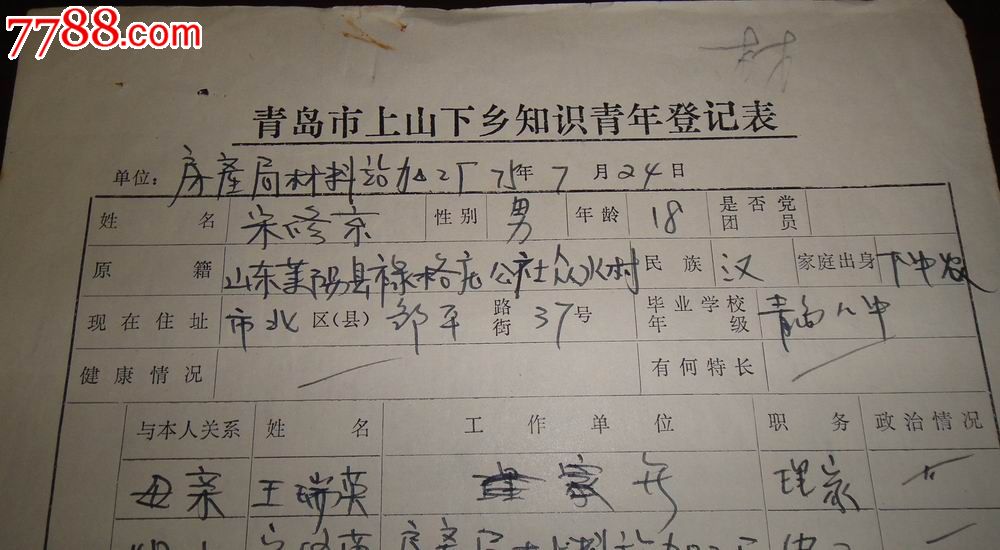 7788.com
林
青岛市上山下乡知识青年登记表
单位: 房产局材料站加工厂 75年 7 月 24 日
姓名 宋修京 性别 男 年龄 18 是否党团员
原籍 山东莱阳县 格庄公社 水村 民族 汉 家庭出身 下中农
现在住址 市北区(县) 邹平路街 37号 毕业学校年级 青岛八中
健康情况 有何特长
与本人关系 姓名 工作单位 职务 政治情况
母亲 王瑞英 理家 〃
房产局材料站加工